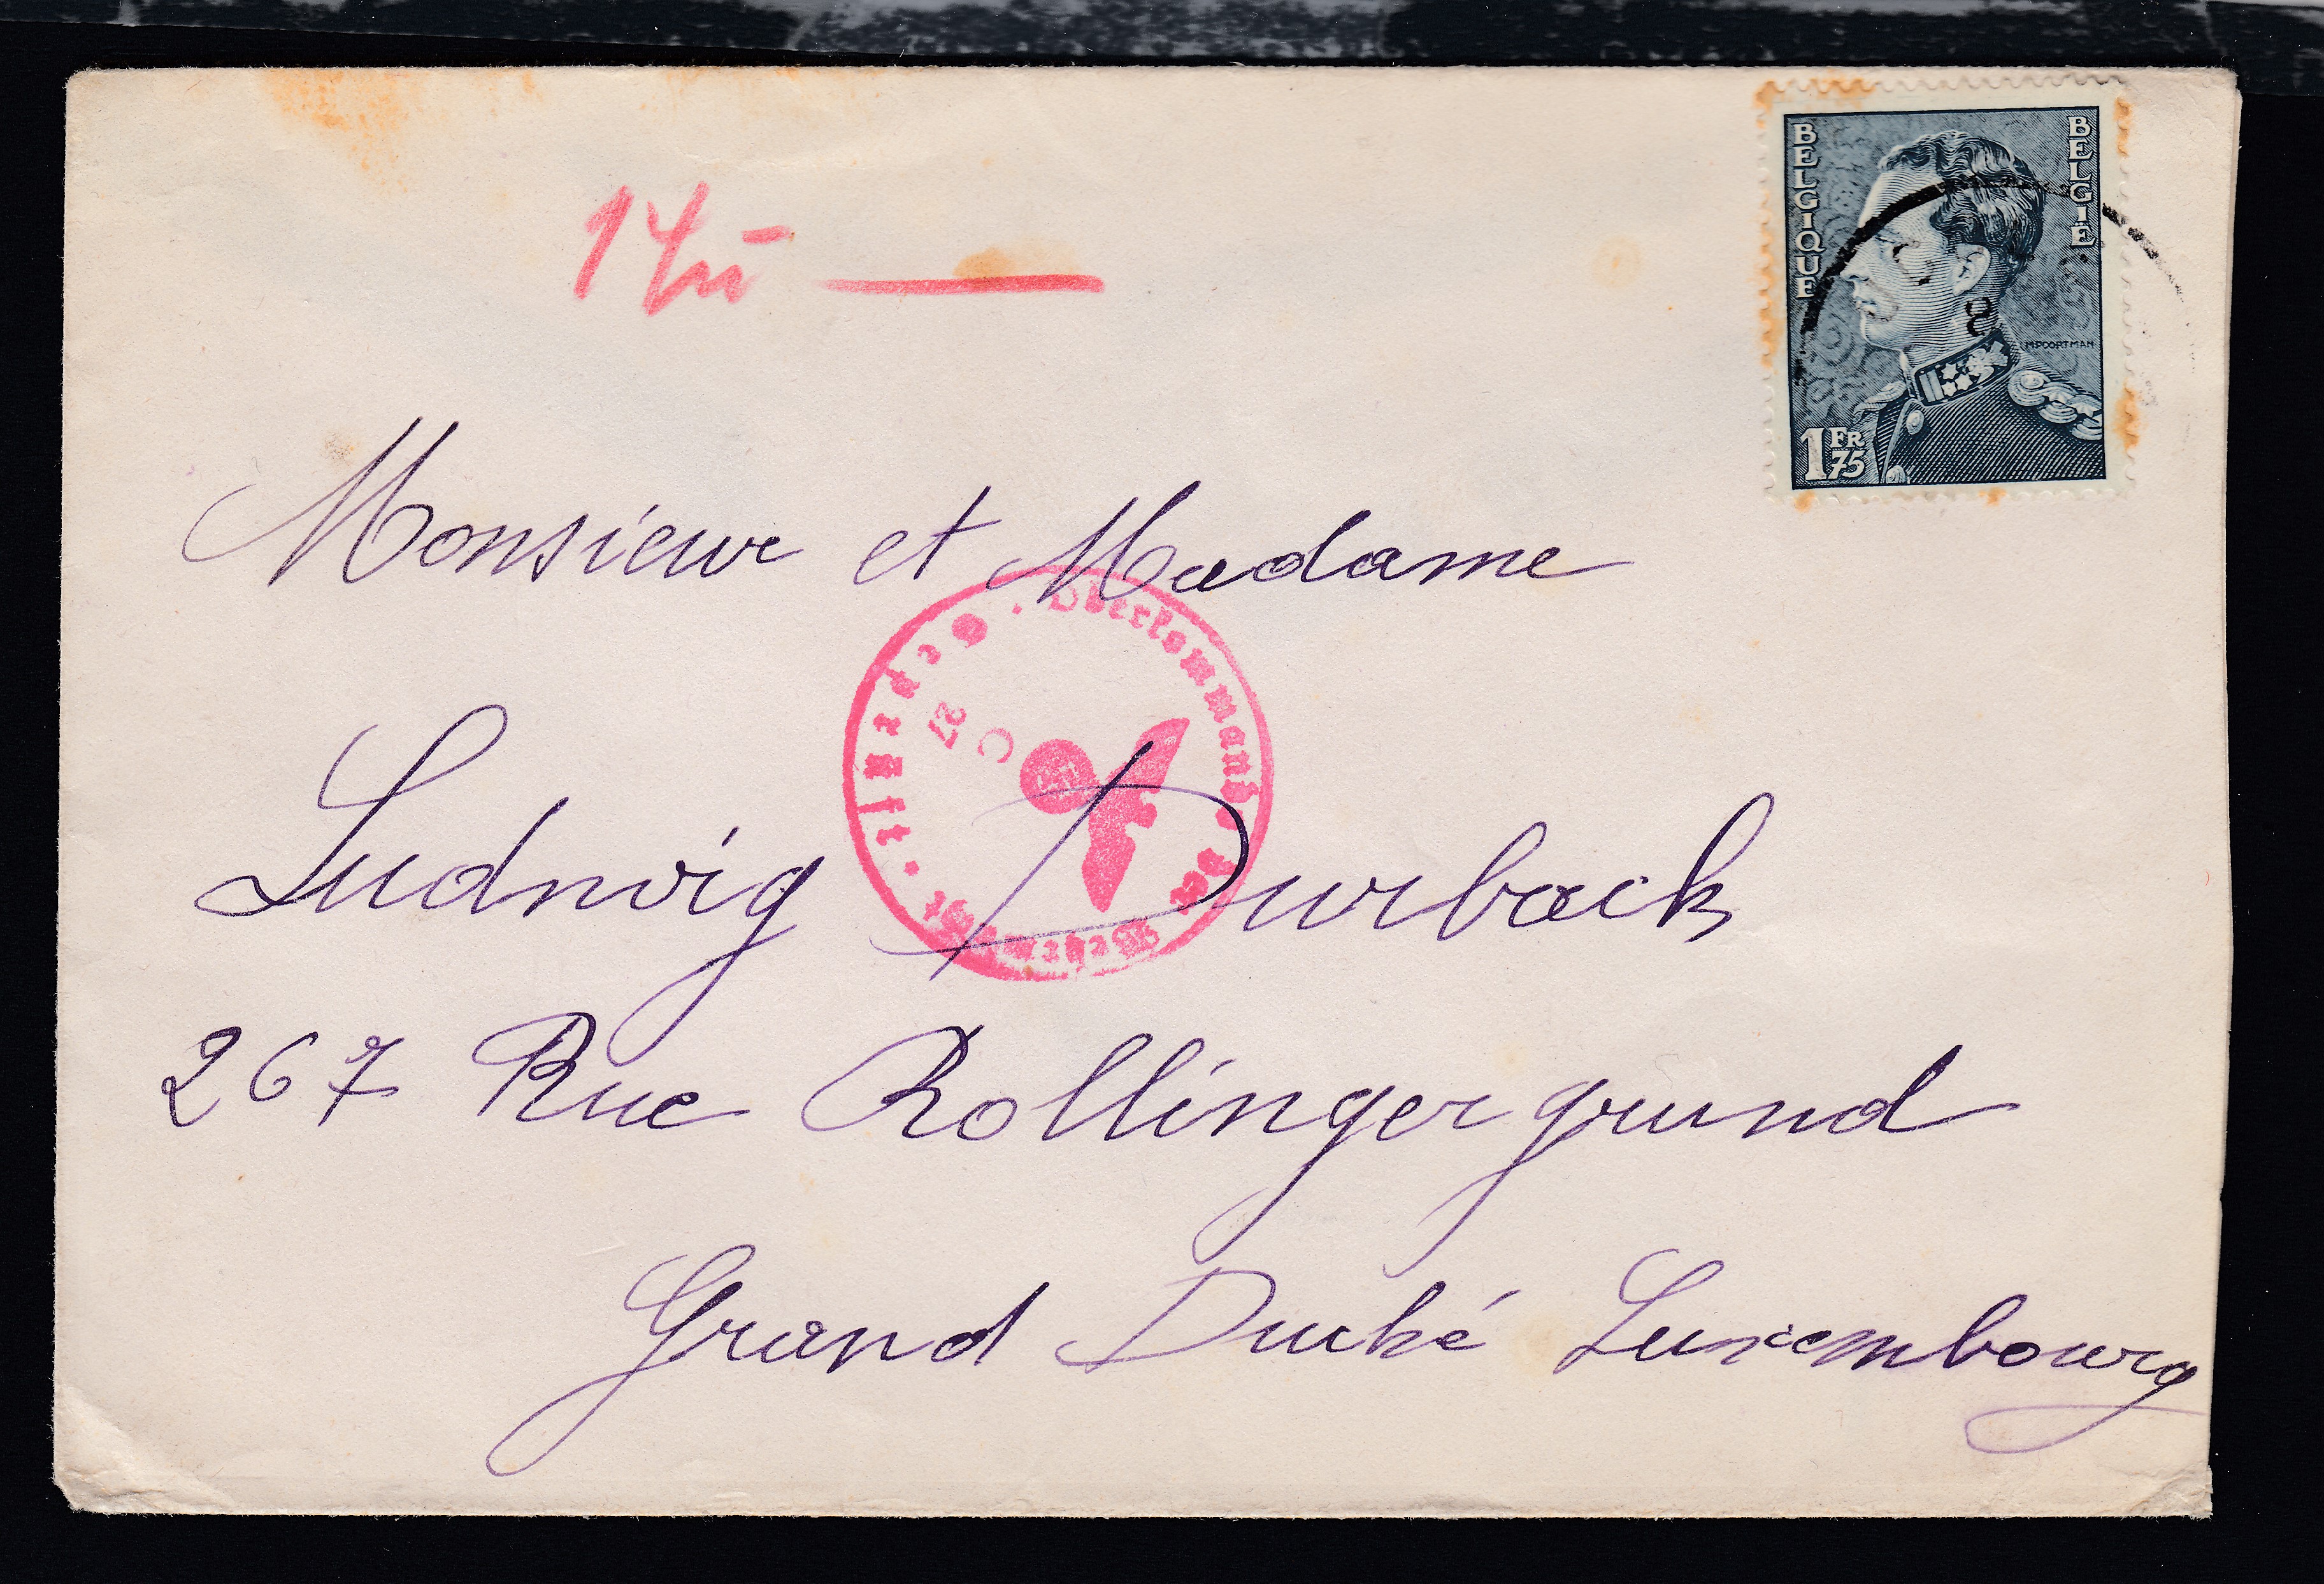 BELGIQUE
BELGIE
M.POORTMAN
1 FR 75
Monsieur et Madame
Geprüft · Oberkommando der Wehrmacht ·
C
27
Ludwig Durback
267 Rue Rollingergrund
Grand Duché Luxembourg